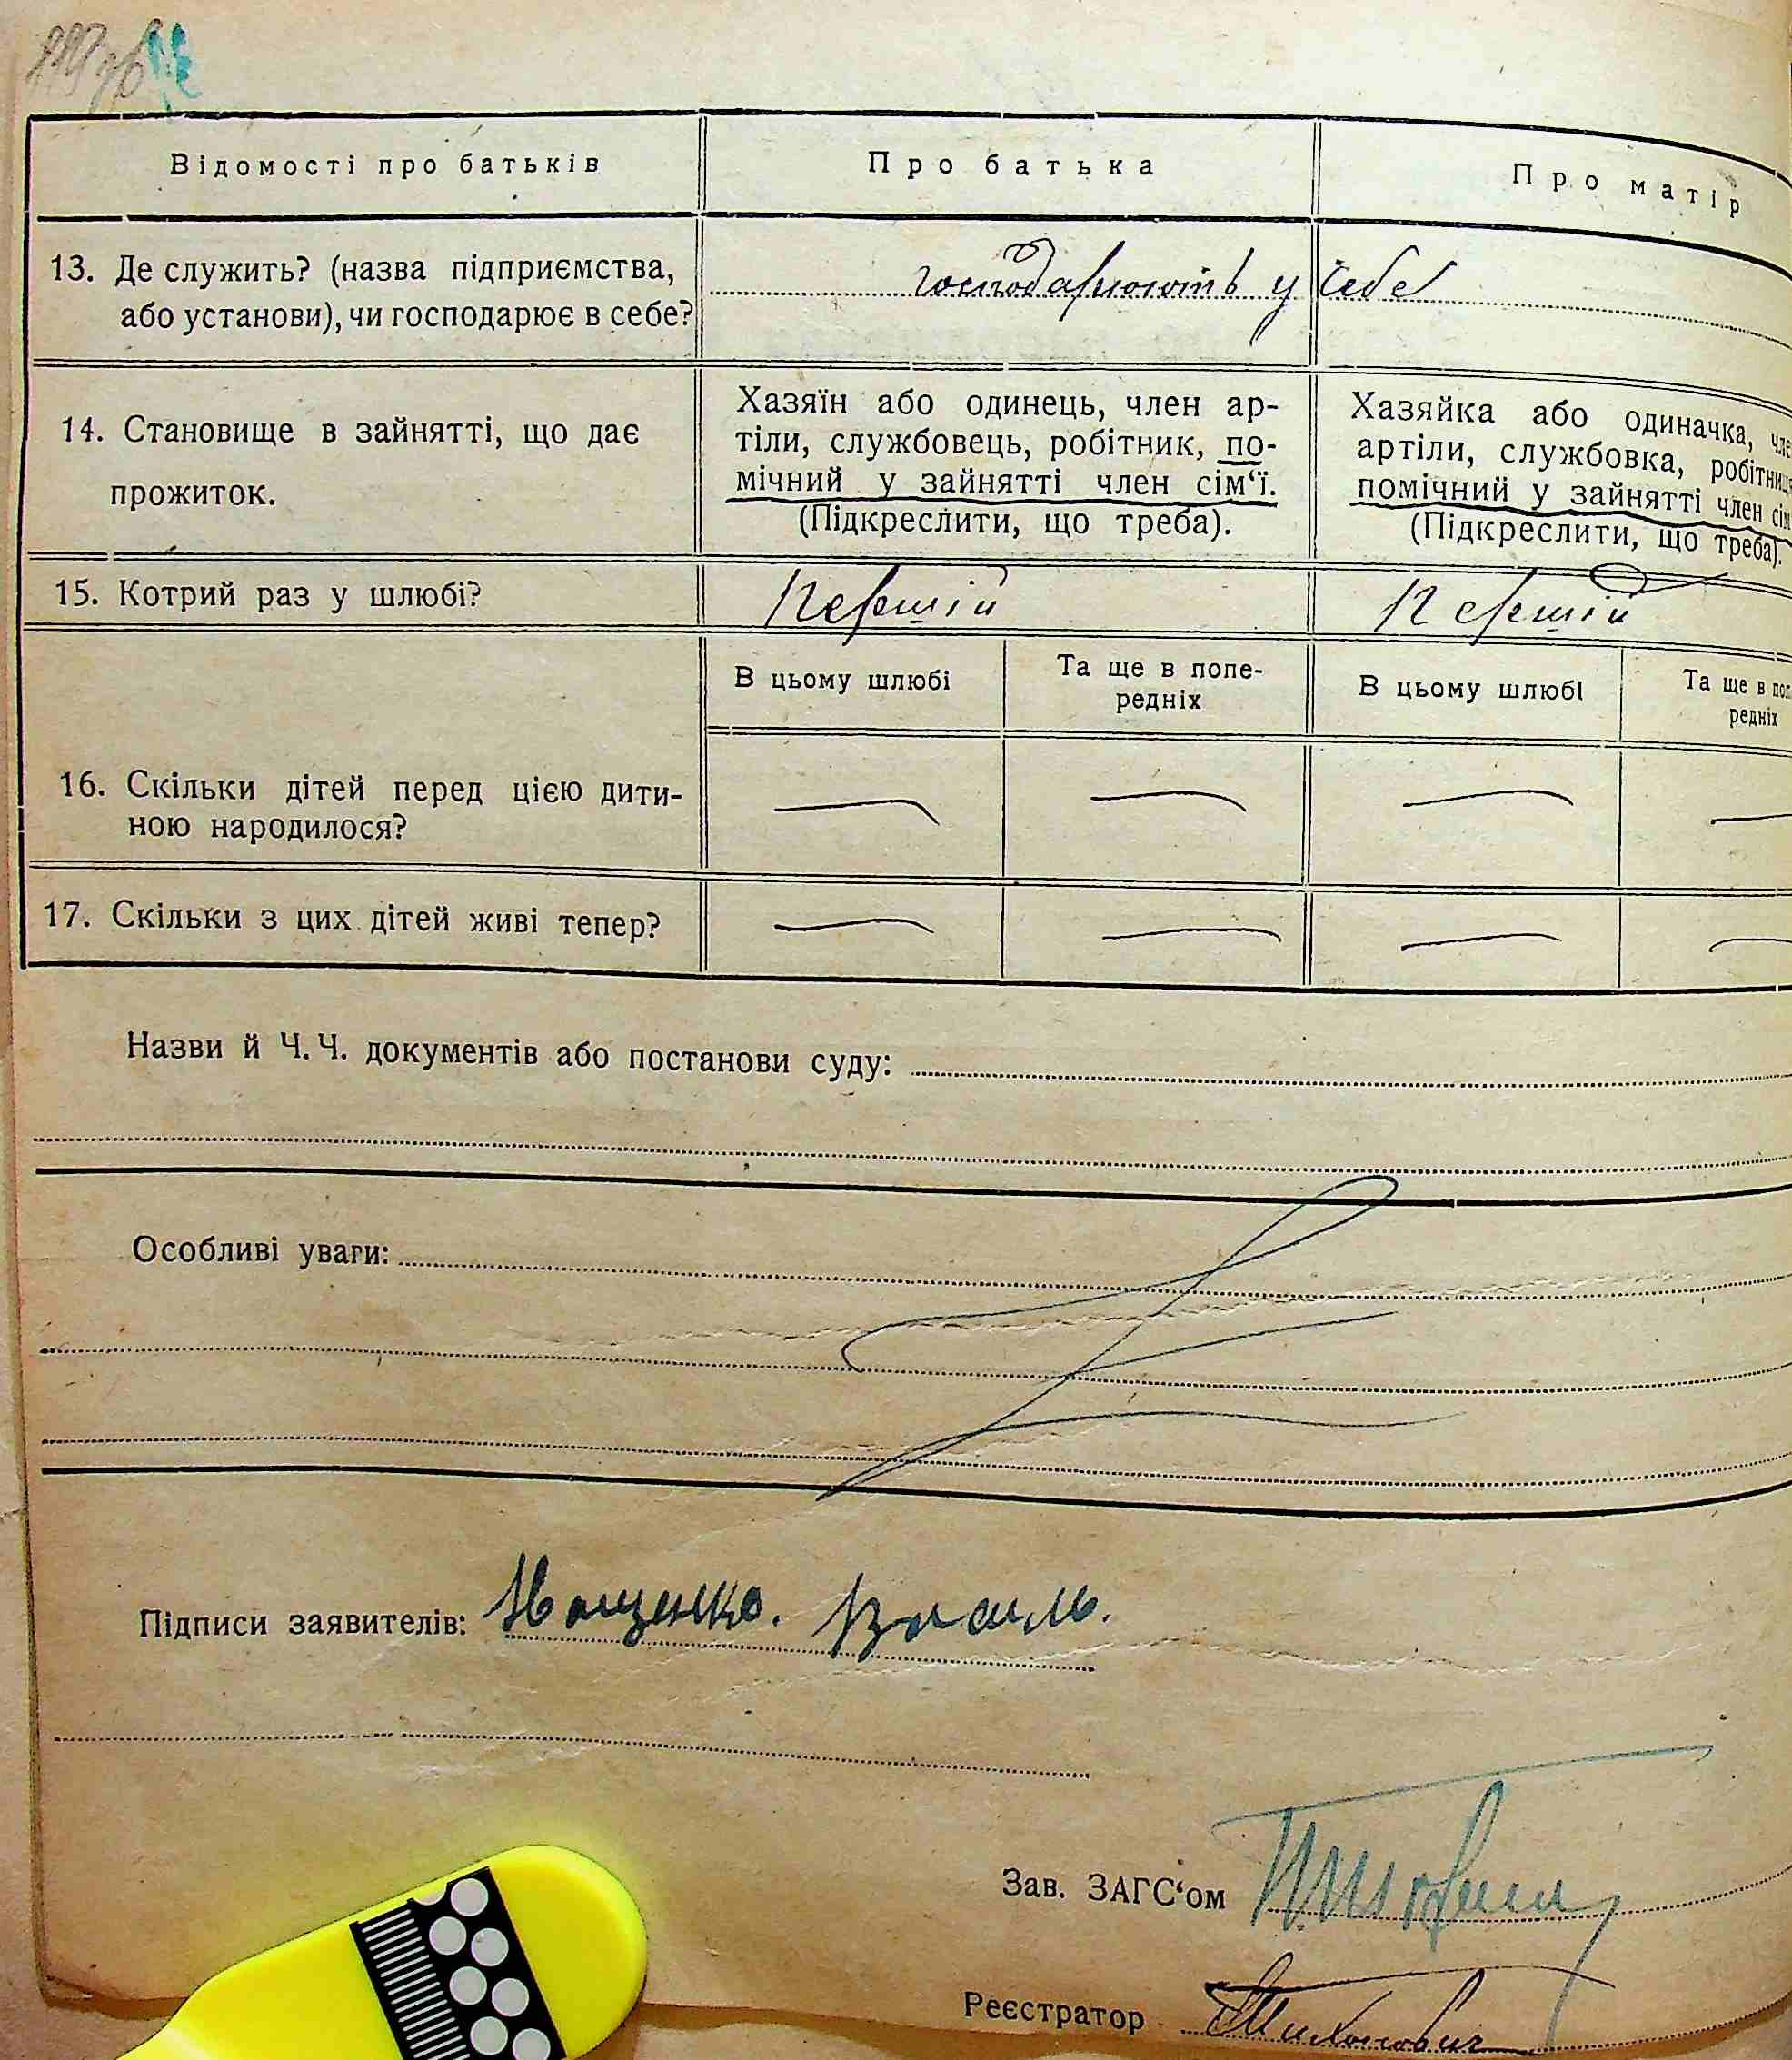 Відомості про батьків
Про батька
Про матір
13. Де служить? (назва підприємства,
або установи), чи господарює в себе?
господарюють у себе
14. Становище в зайнятті, що дає
прожиток.
Хазяїн або одинець, член ар-
тіли, службовець, робітник, по-
мічний у зайнятті член сім‘ї.
(Підкреслити, що треба).
Хазяйка або одиначка, чле
артіли, службовка, робітниця
помічний у зайнятті член сім
(Підкреслити, що треба).
15. Котрий раз у шлюбі?
Першій
Першій
В цьому шлюбі
Та ще в попе-
редніх
В цьому шлюбі
Та ще в поп
редніх
16. Скільки дітей перед цією дити-
ною народилося?
17. Скільки з цих дітей живі тепер?
Назви й Ч. Ч. документів або постанови суду:
Особливі уваги:
Підписи заявителів: Иващенко. Василь.
Зав. ЗАГС‘ом
Реєстратор